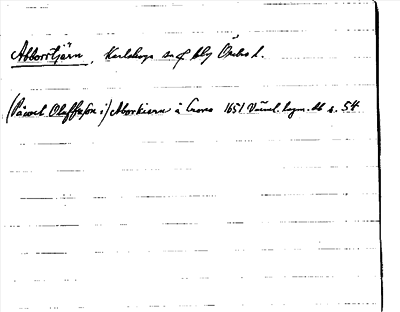 Abborrtjärn, Karlskoga sn f bly Örebro l.
(Påwel Oluffsson i) Aborkiern å Crono 1651 Värml. lagm. db s. 54